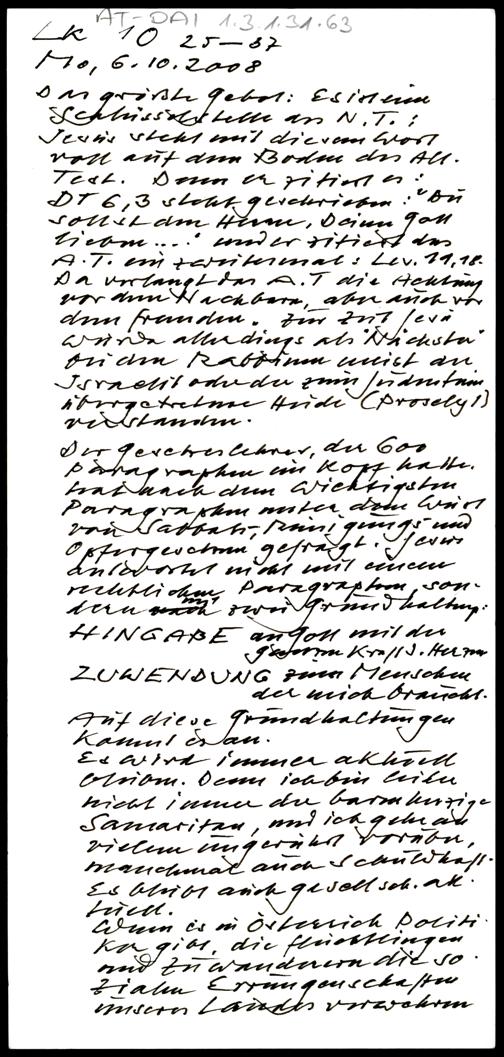 AT-DAI 1.3.1.31.63
Lk 10 25-37
Mo, 6.10.2008
Das größte Gebot: Es ist eine
Schlüsselstelle des N.T.:
Jesus steht mit diesem Wort
voll auf dem Boden des Alt.
Test. Denn er zitiert es:
DT 6,3 steht geschrieben: "Du
sollst den Herrn, Deinen Gott
lieben...." und er zitiert das
A.T. ein zweitesmal: Lev. 19,18.
Da verlangt das A.T die Achtung
vor dem Nachbarn, aber auch vor
dem fremden. Zur Zeit Jesu
wurde allerdings als "Nächster"
bei den Rabbinen meist der
Israelit oder der zum Judentum
übergetretene Heide (Proselyt)
verstanden.
Der Gesetzeslehrer, der 600
Paragraphen im Kopf hatte.
hat nach dem wichtigsten
Paragraphen unter dem Wust
von Sabbats-, Reinigungs und
Opfergesetzen gefragt. Jesus
antwortet nicht mit einem
rechtlichen Paragraphen, son-
dern mit zwei Grundhaltung:
HINGABE an Gott mit der
ganzen Kraft d. Herzen
ZUWENDUNG zum Menschen
der mich braucht.
Auf diese Grundhaltungen
kommt es an.
Es wird immer aktuell
bleiben. Denn ich bin leider
nicht immer der barmherzige
Samaritan, und ich gehe an
vielem ungerührt vorüber,
manchmal auch schuldhaft.
Es bleibt auch gesellsch. ak-
tuell.
Wenn es in Österreich Politi-
ker gibt, die flüchtlingen
und Zuwanderern die so-
zialen Errungenschaften
unseres Landes verwehren